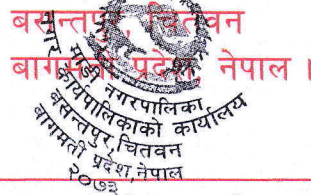 बसन्तपुर, चितवन
बागमती प्रदेश, नेपाल ।
माडी नगरपालिका
नगर कार्यपालिकाको कार्यालय
बसन्तपुर, चितवन
बागमती प्रदेश, नेपाल
२०७३